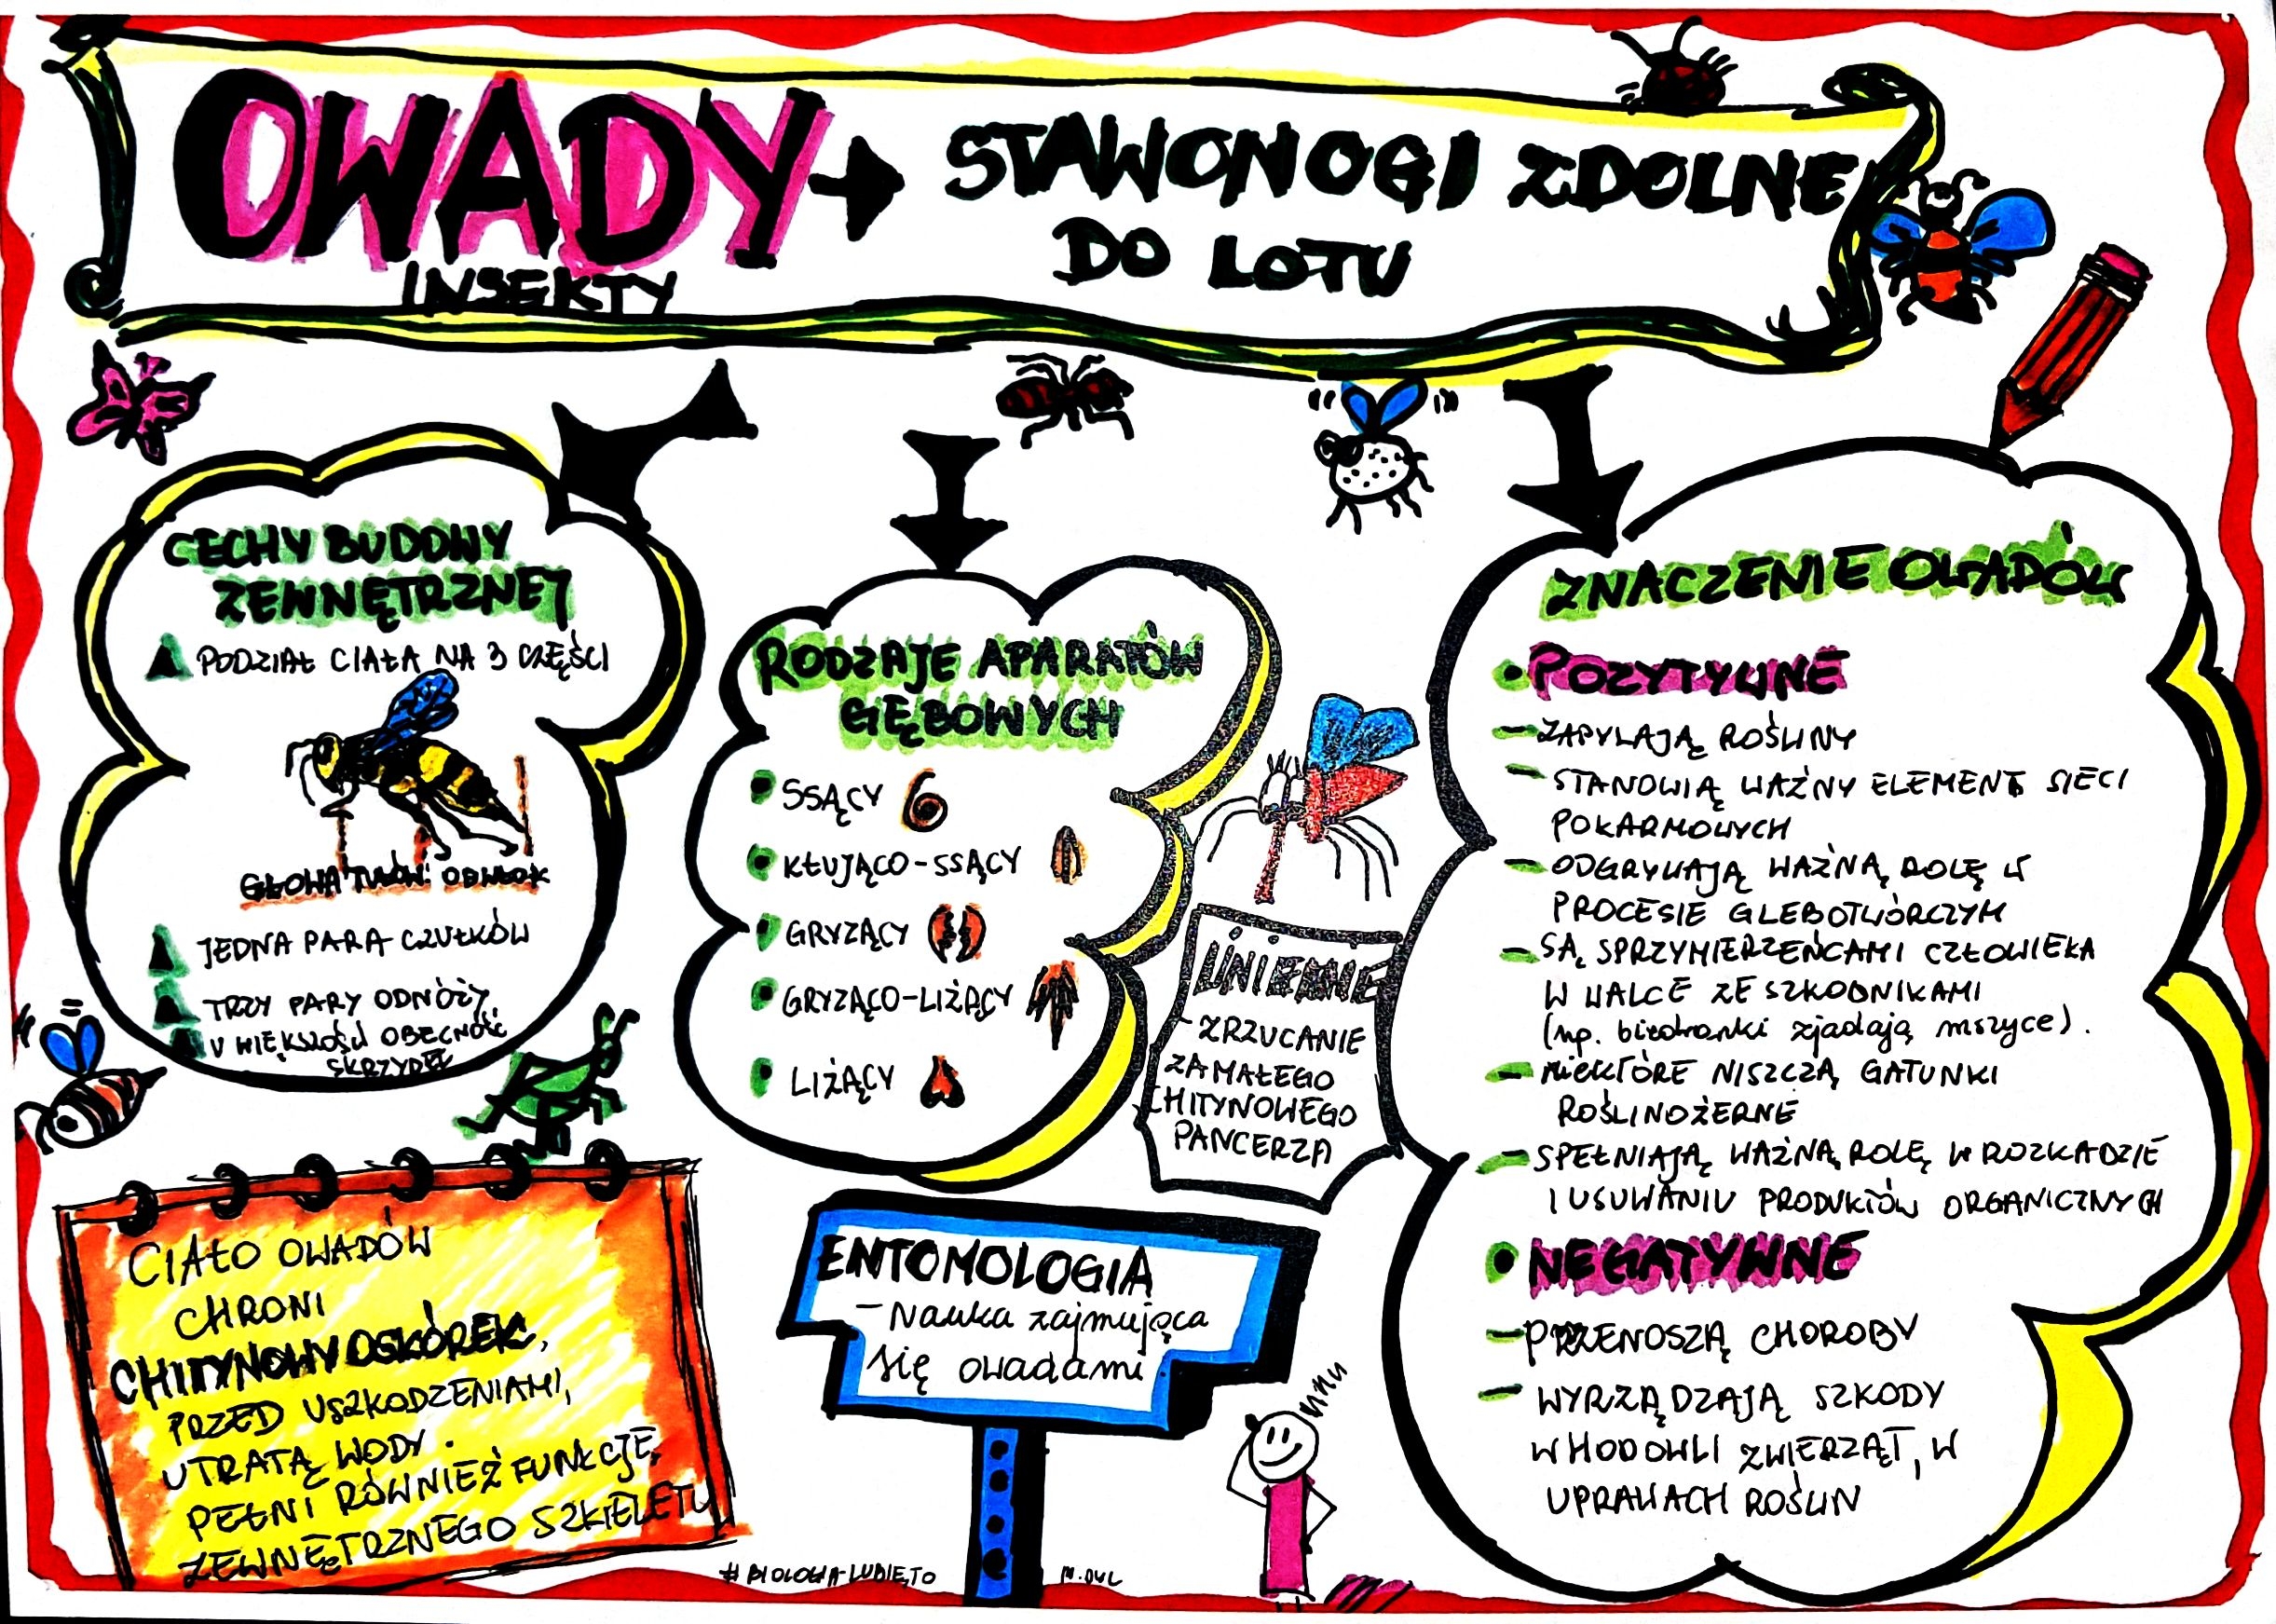 OWADY → STAWONOGI ZDOLNE
INSEKTY
DO LOTU
CECHY BUDOWY
ZEWNĘTRZNEJ
PODZIAŁ CIAŁA NA 3 CZĘŚCI
GŁOWA TUŁÓW ODWŁOK
JEDNA PARA CZUŁKÓW
TRZY PARY ODNÓŻY
U WIĘKSZOŚCI OBECNOŚĆ
SKRZYDEŁ
CIAŁO OWADÓW
CHRONI
CHITYNOWY OSKÓREK,
PRZED USZKODZENIAMI,
UTRATĄ WODY.
PEŁNI RÓWNIEŻ FUNKCJĘ
ZEWNĘTRZNEGO SZKIELETU
RODZAJE APARATÓW
GĘBOWYCH
SSĄCY
KŁUJĄCO-SSĄCY
GRYZĄCY
GRYZĄCO-LIŻĄCY
LIŻĄCY
LINIENIE
- ZRZUCANIE
ZA MAŁEGO
CHITYNOWEGO
PANCERZA
ENTOMOLOGIA
- Nauka zajmująca
się owadami
ZNACZENIE OWADÓW
• POZYTYWNE
- ZAPYLAJĄ ROŚLINY
- STANOWIĄ WAŻNY ELEMENT SIECI
POKARMOWYCH
- ODGRYWAJĄ WAŻNĄ ROLĘ W
PROCESIE GLEBOTWÓRCZYM
- SĄ SPRZYMIERZEŃCAMI CZŁOWIEKA
W WALCE ZE SZKODNIKAMI
(np. biedronki zjadają mszyce).
- NIEKTÓRE NISZCZĄ GATUNKI
ROŚLINOŻERNE
- SPEŁNIAJĄ WAŻNĄ ROLĘ W ROZKADZIE
I USUWANIU PRODUKTÓW ORGANICZNYCH
• NEGATYWNE
- PRZENOSZĄ CHOROBY
- WYRZĄDZAJĄ SZKODY
W HODOWLI ZWIERZĄT, W
UPRAWACH ROŚLIN
# BIOLOGIA LUBIĘ TO